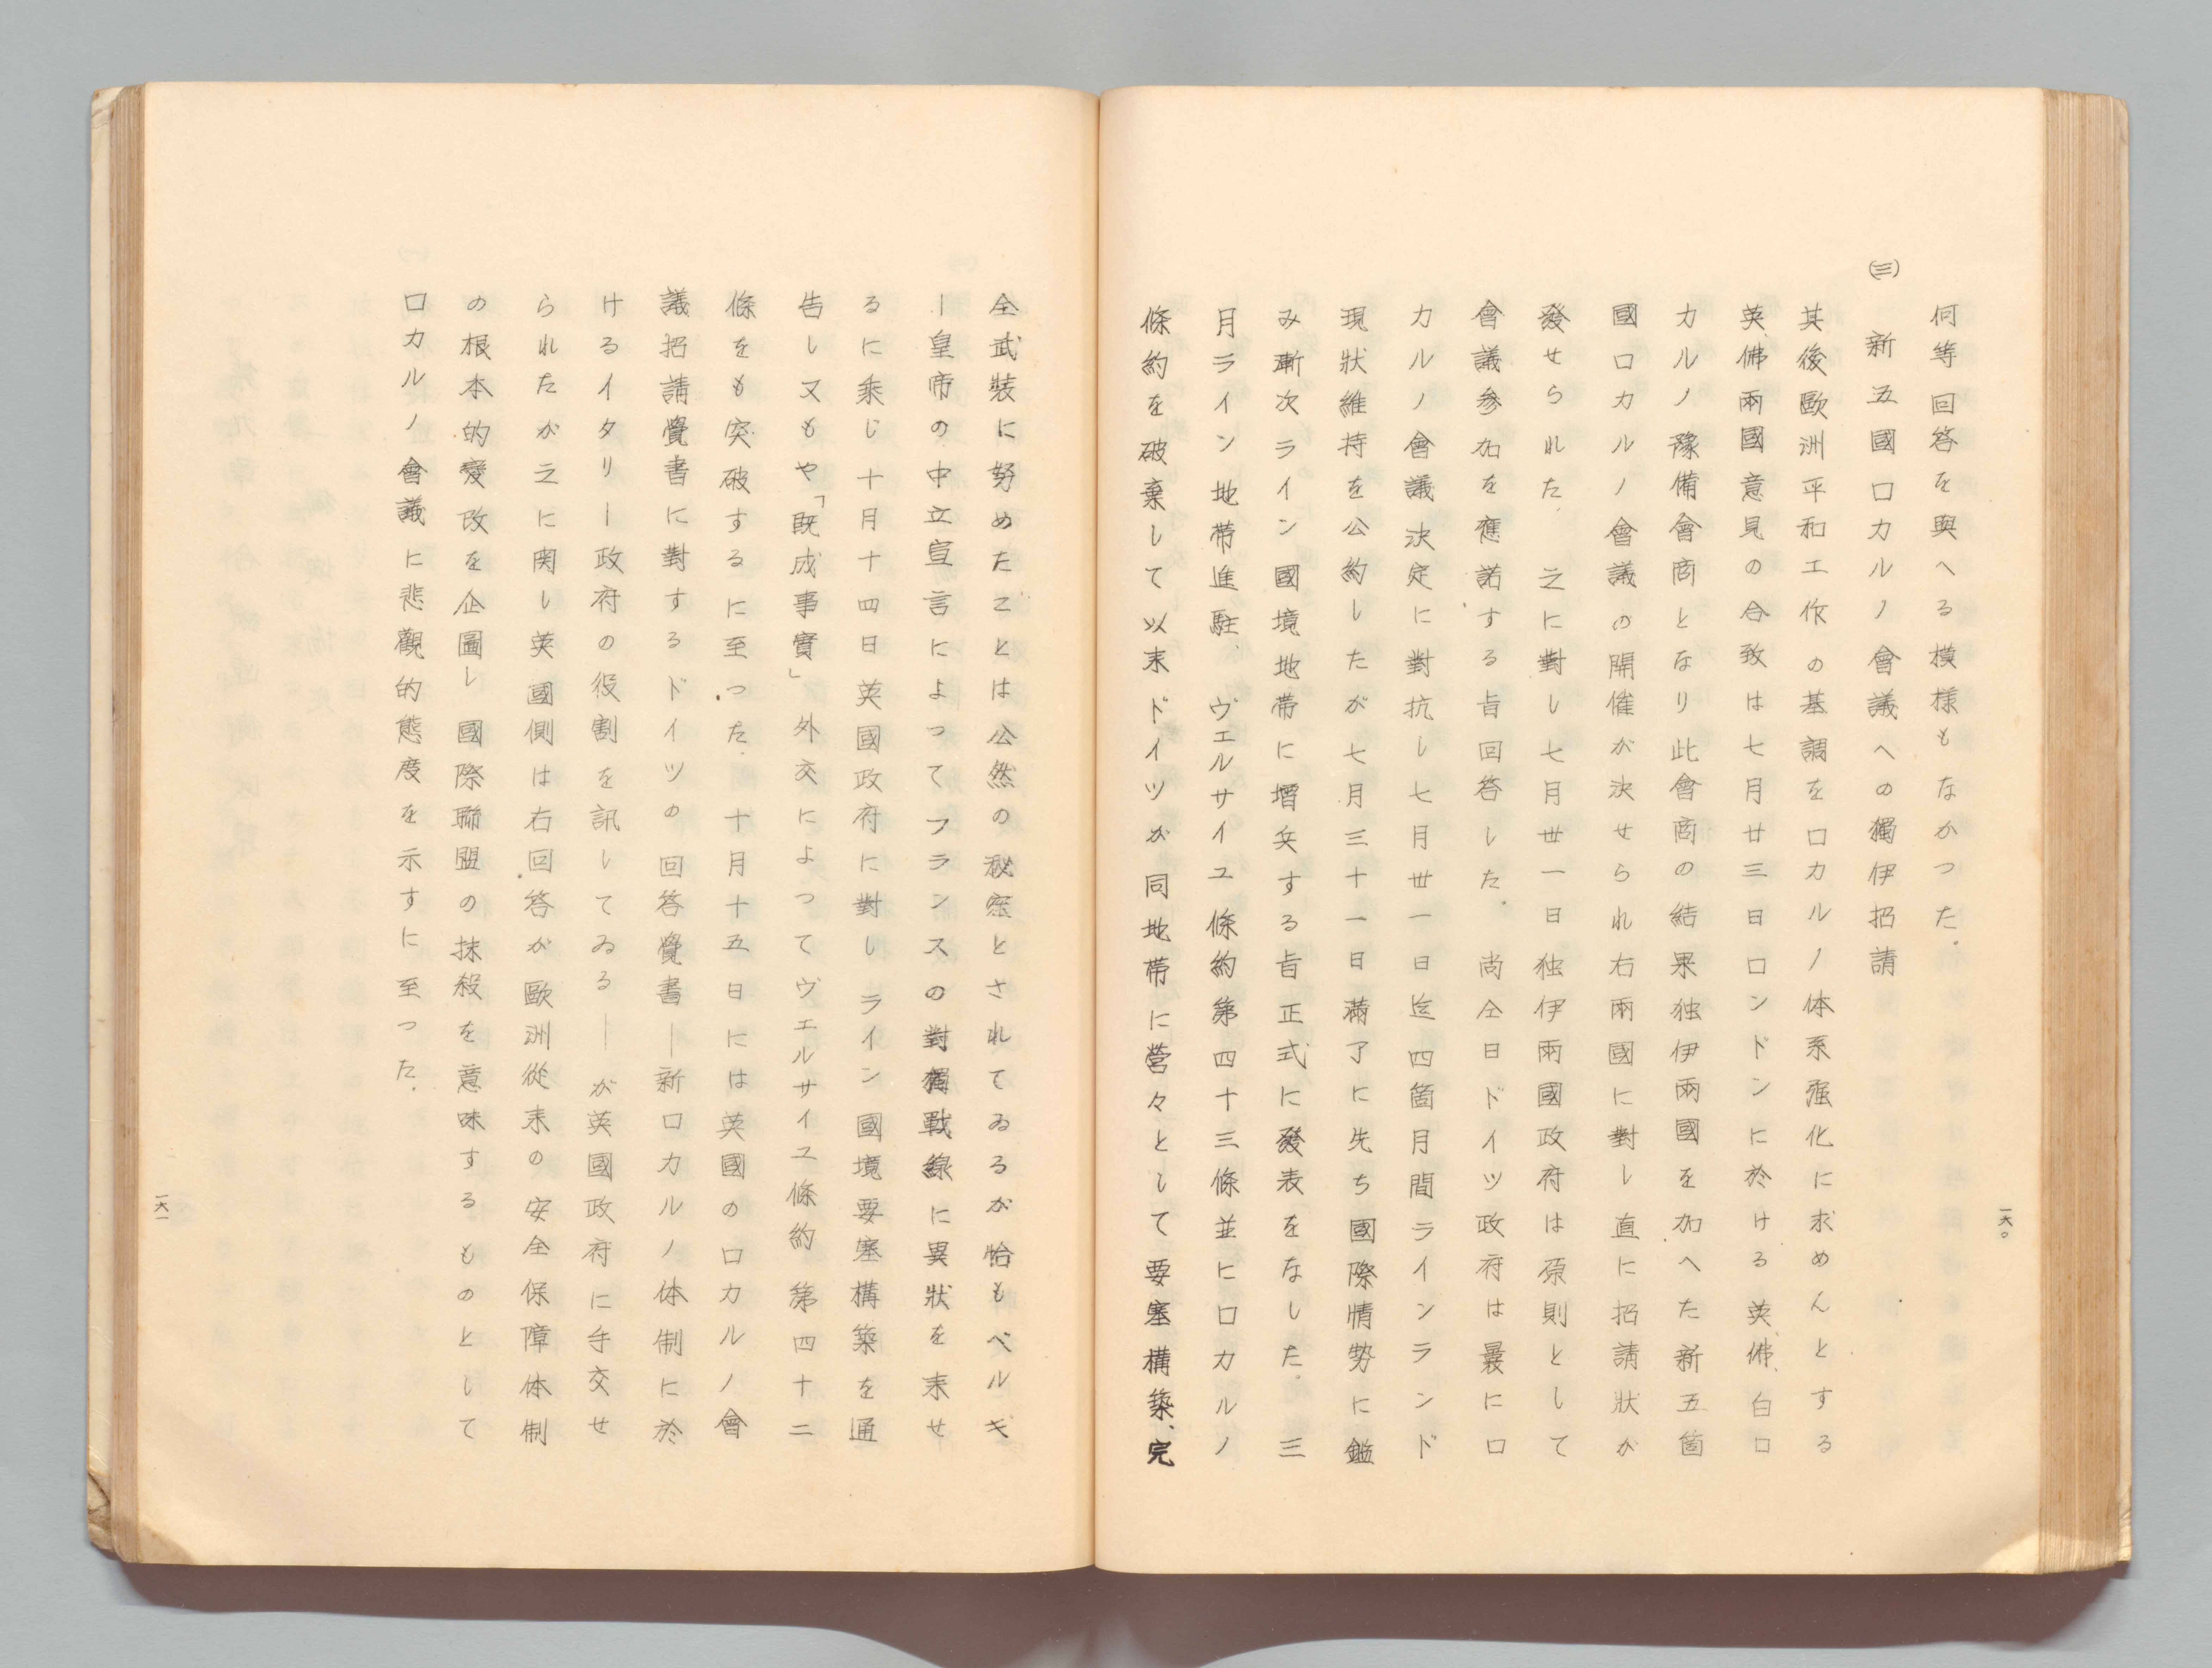 何等回答を與へる模様もなかつた．
(三)　新五國ロカルノ會議への獨伊招請
其後歐洲平和工作の基調をロカルノ体系强化に求めんとする
英、佛兩國意見の合致は七月廿三日ロンドンに於ける英、佛、白ロ
カルノ豫備會商となり此會商の結果独伊兩國を加へた新五箇
國ロカルノ會議の開催が決せられ右兩國に對し直に招請狀が
發せられた．之に對し七月卅一日独伊兩國政府は原則として
會議參加を應諾する旨回答した．尚仝日ドイツ政府は曩にロ
カルノ會議決定に對抗し七月卅一日迄四箇月間ラインランド
現狀維持を公約したが七月三十一日滿了に先ち國際情勢に鑑
み漸次ライン國境地帶に增兵する旨正式に發表をなした．三
月ライン地帶進駐、ヴエルサイユ條約第四十三條並にロカルノ
條約を破棄して以来ドイツが同地帶に營々として要塞構築、完
一六〇
全武裝に努めたことは公然の秘密とされてゐるが恰もベルギ
ー皇帝の中立宣言によつてフランスの對獨戰線に異狀を来せ
るに乘じ十月十四日英國政府に對しライン國境要塞構築を通
告し又もや「既成事實」外交によつてヴエルサイユ條約第四十二
條をも突破するに至つた．十月十五日には英國のロカルノ會
議招請覺書に對するドイツの回答覺書―新ロカルノ体制に於
けるイタリー政府の役割を訊してゐる―が英國政府に手交せ
られたが之に関し英國側は右回答が歐洲從来の安全保障体制
の根本的變改を企圖し國際聯盟の抹殺を意味するものとして
ロカルノ會議に悲觀的態度を示すに至つた．
一六一